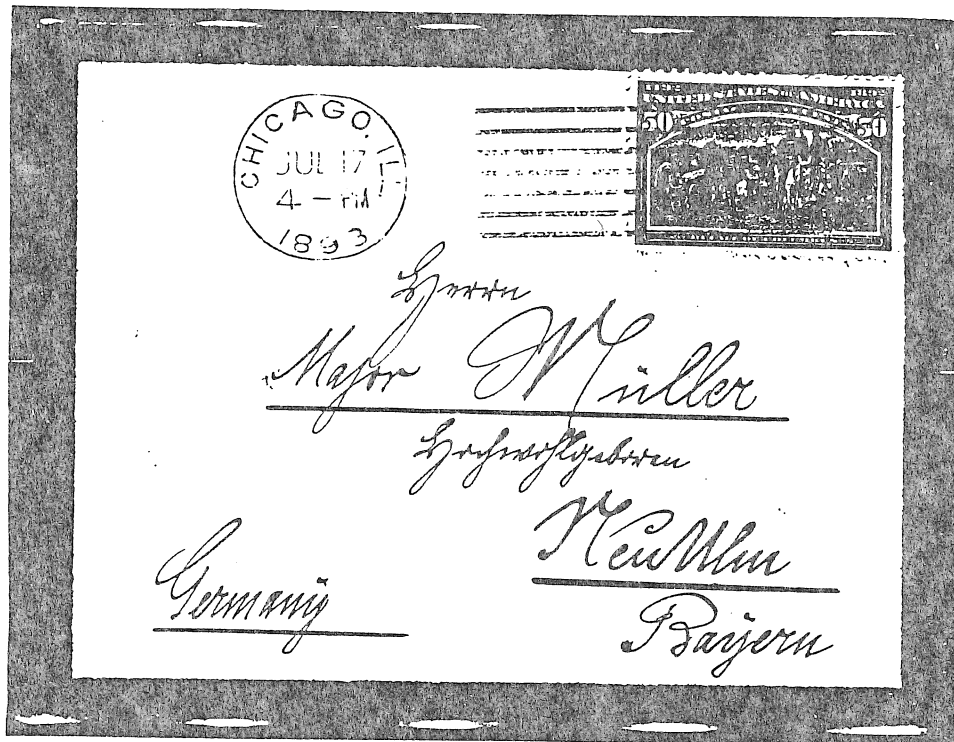 CHICAGO, ILL.
JUL 17
4 - PM
1893
1492 1892
UNITED STATES OF AMERICA
50 50
Herrn
Major Müller
Hochwohlgeboren
Neu Ulm
Germany
Bayern